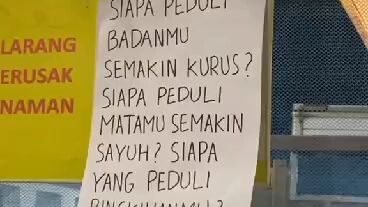 SIAPA PEDULI
BADANMU
SEMAKIN KURUS?
SIAPA PEDULI
MATAMU SEMAKIN
SAYUH? SIAPA
YANG PEDULI
LARANG
ERUSAK
NAMAN